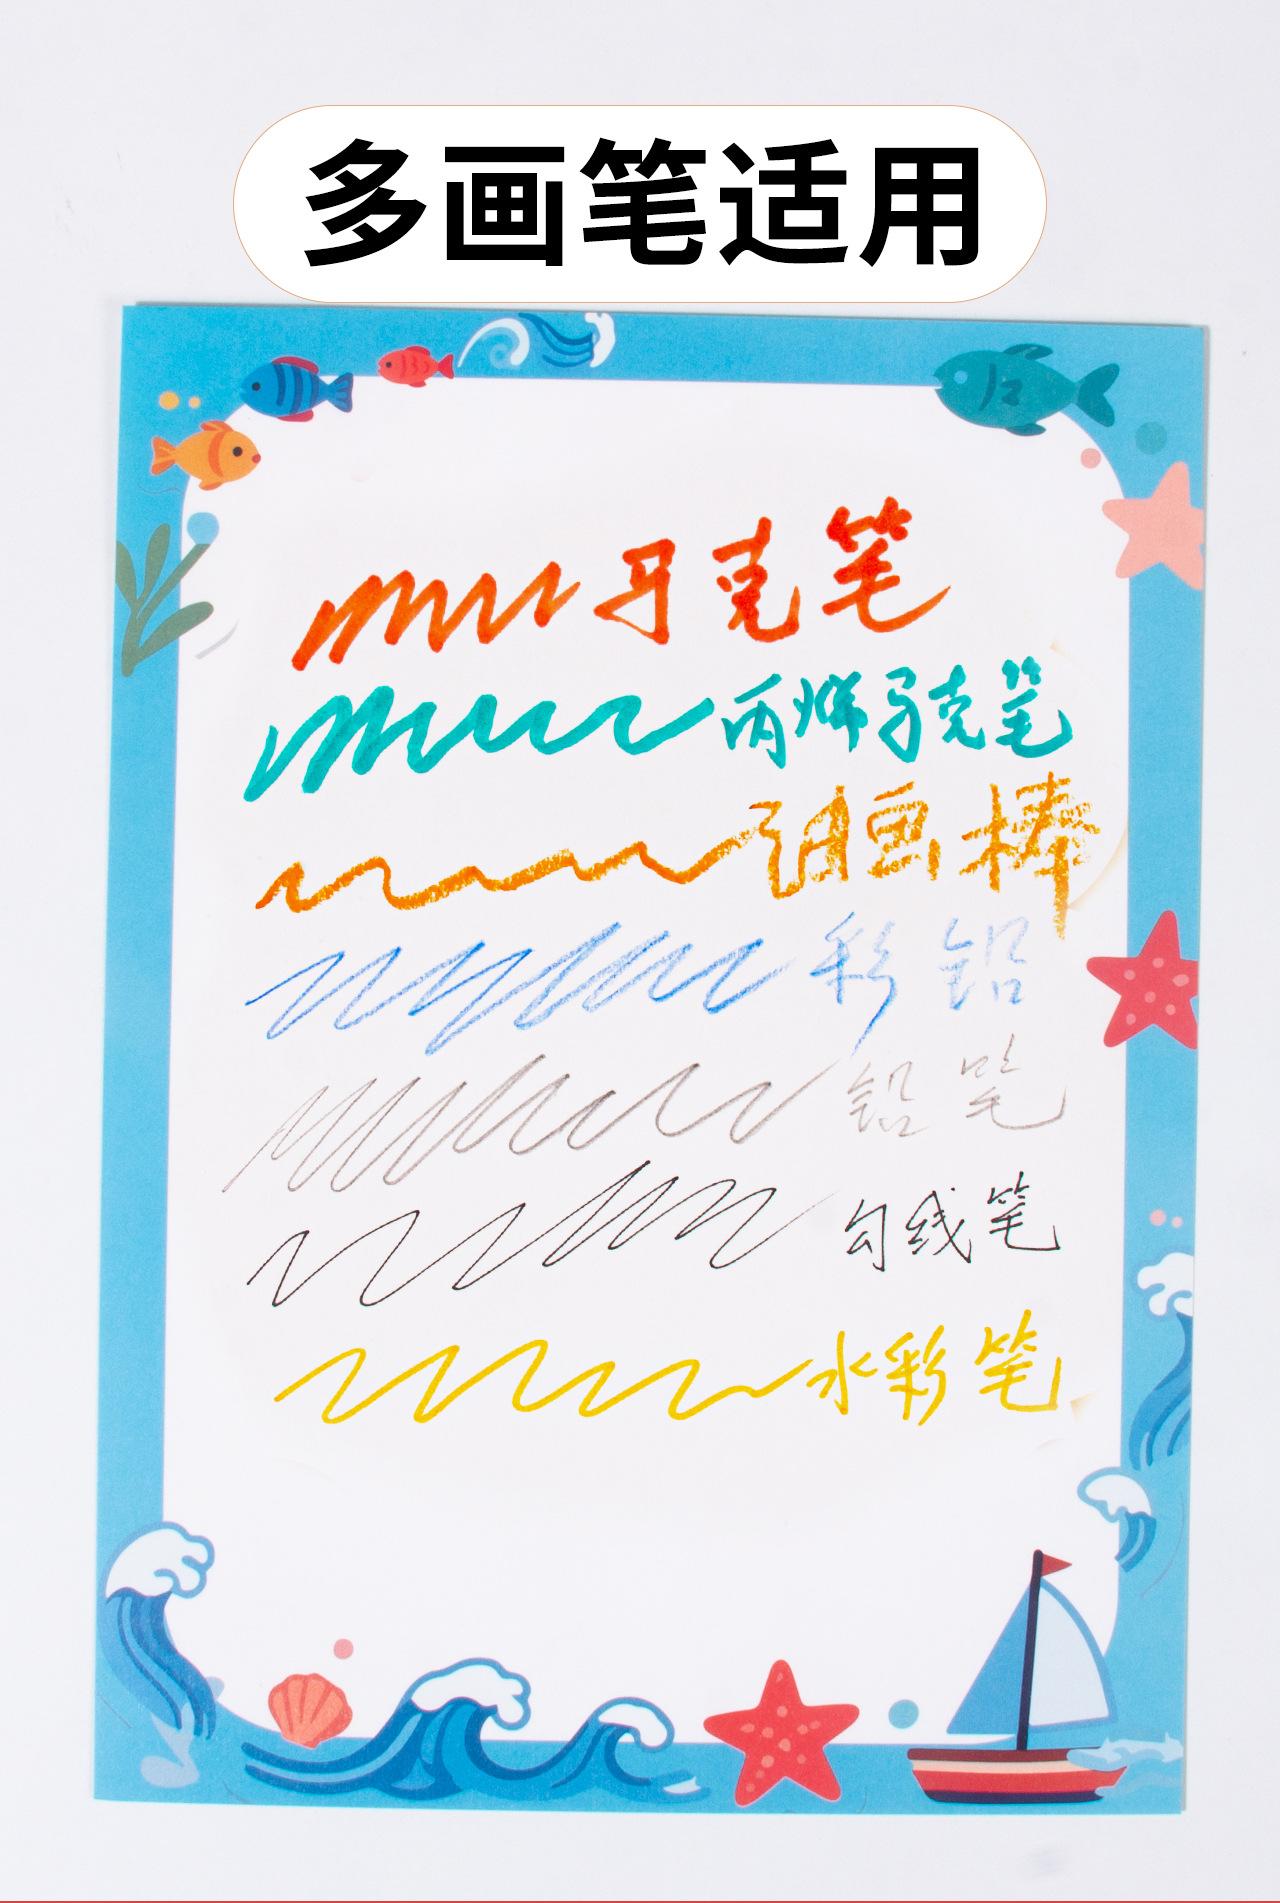 多画笔适用
马克笔
丙烯马克笔
油画棒
彩铅
铅笔
勾线笔
水彩笔